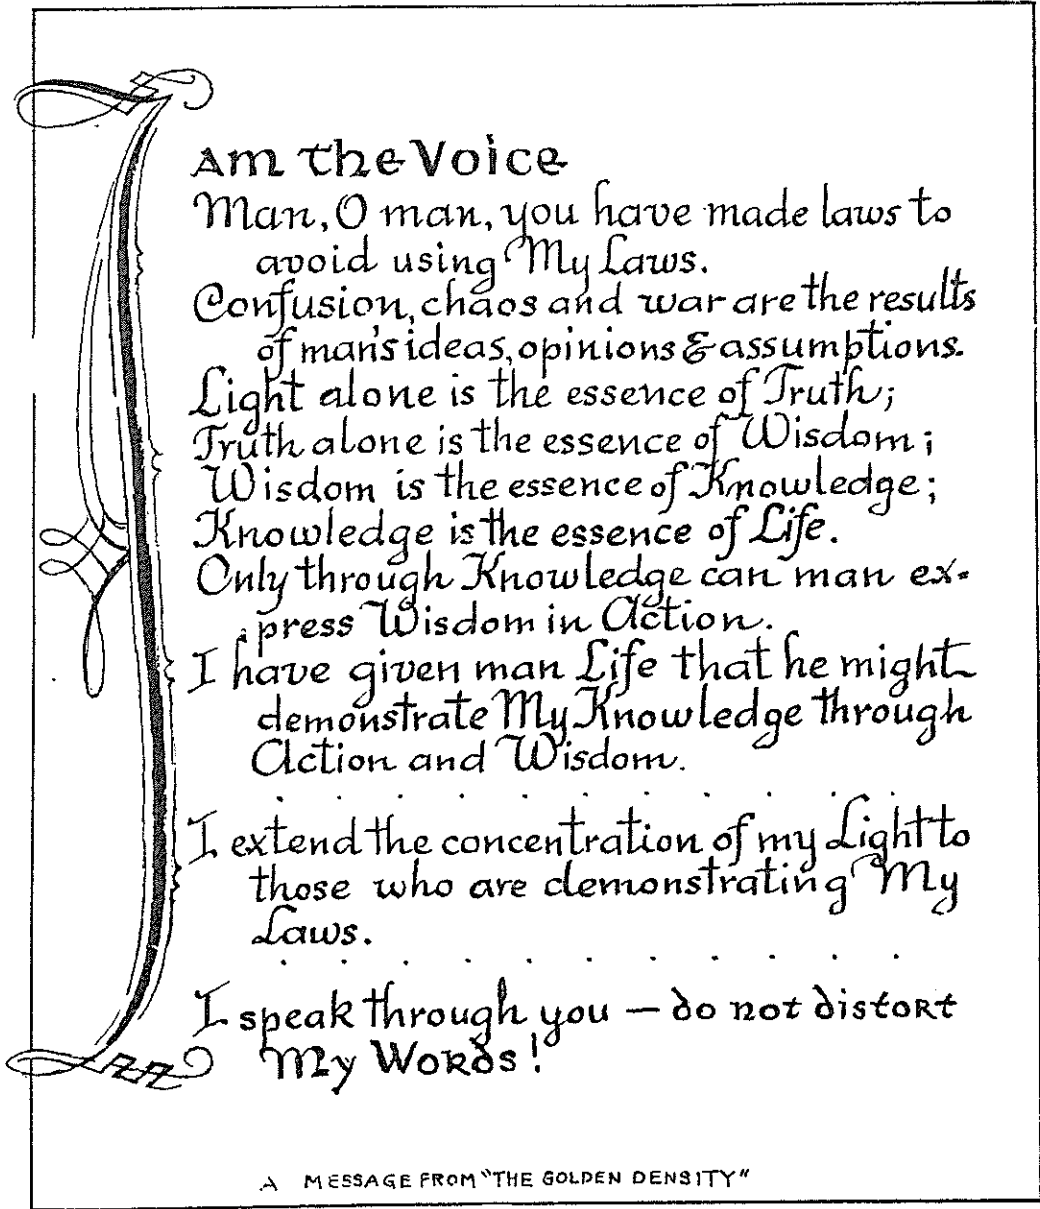 I am the Voice
Man, O man, you have made laws to
avoid using My Laws.
Confusion, chaos and war are the results
of man's ideas, opinions & assumptions.
Light alone is the essence of Truth;
Truth alone is the essence of Wisdom;
Wisdom is the essence of Knowledge;
Knowledge is the essence of Life.
Only through Knowledge can man ex-
press Wisdom in Action.
I have given man Life that he might
demonstrate My Knowledge through
Action and Wisdom.
. . . . . . . . . . . .
I extend the concentration of my Light to
those who are demonstrating My
Laws.
. . . . . . . . . . .
I speak through you — do not distort
My Words!
A MESSAGE FROM "THE GOLDEN DENSITY"